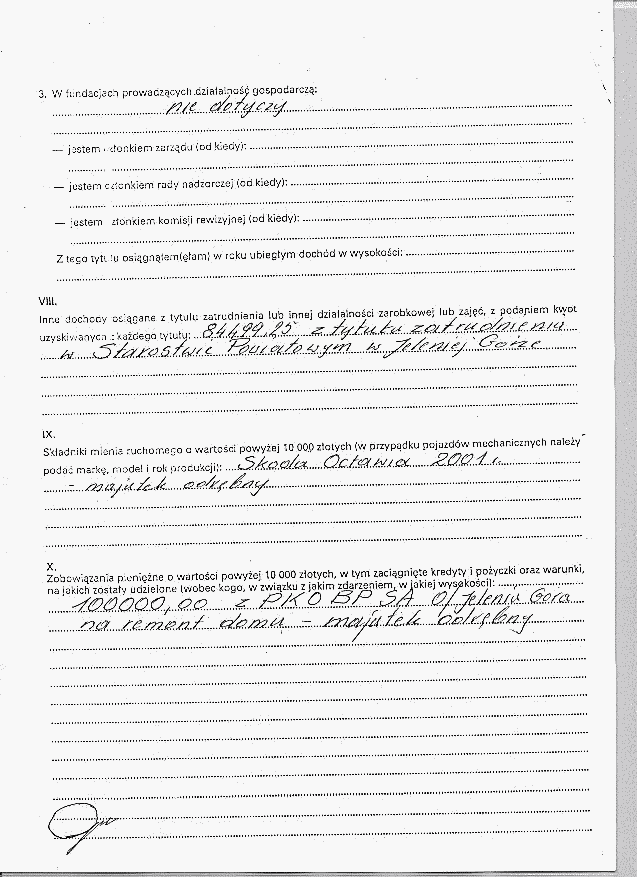 3. W fundacjach prowadzących działalność gospodarczą:
nie dotyczy
— jestem członkiem zarządu (od kiedy):
— jestem członkiem rady nadzorczej (od kiedy):
— jestem członkiem komisji rewizyjnej (od kiedy):
Z tego tytułu osiągnąłem(ęłam) w roku ubiegłym dochód w wysokości:
VIII.
Inne dochody osiągane z tytułu zatrudnienia lub innej działalności zarobkowej lub zajęć, z podaniem kwot
uzyskiwanych z każdego tytułu: 84499,25 z tytułu zatrudnienia
w Starostwie Powiatowym w Jeleniej Górze
IX.
Składniki mienia ruchomego o wartości powyżej 10 000 złotych (w przypadku pojazdów mechanicznych należy
podać markę, model i rok produkcji): Skoda Octawia 2001 r.
- majątek odrębny
X.
Zobowiązania pieniężne o wartości powyżej 10 000 złotych, w tym zaciągnięte kredyty i pożyczki oraz warunki,
na jakich zostały udzielone (wobec kogo, w związku z jakim zdarzeniem, w jakiej wysokości):
100000,00 z PKO BP SA O/Jelenia Góra
na remont domu - majątek odrębny